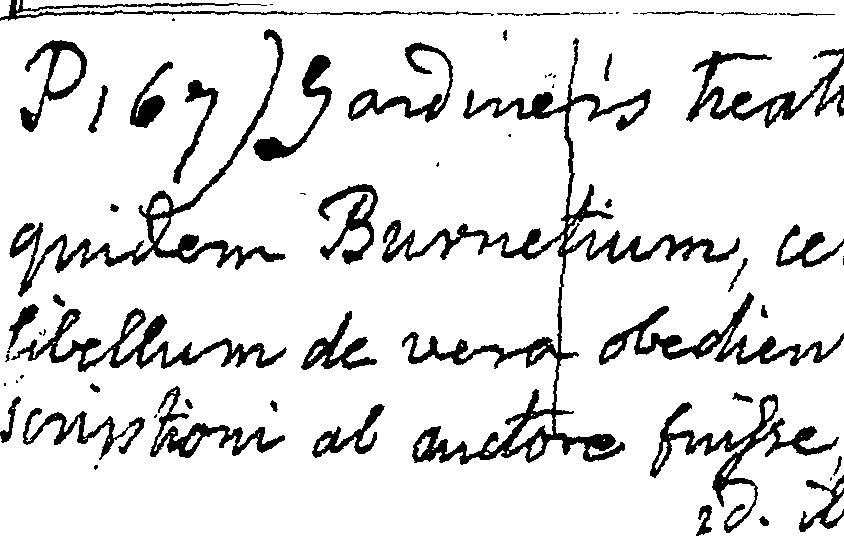 P 167) Gardiner's treat
quidem Burnetium, ce
libellum de vera obedien
scriptioni ab auctore fuisse,
id. il